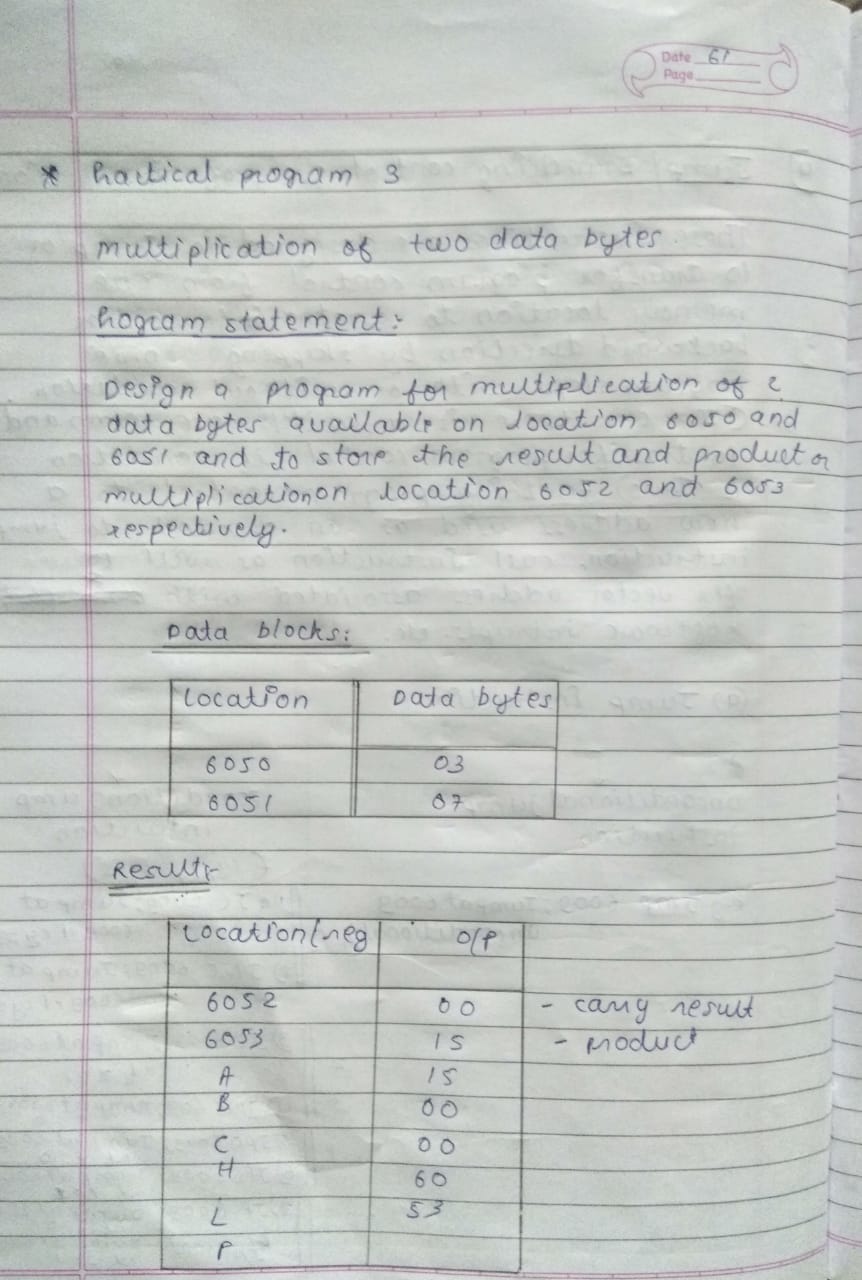 Date 61
Page
* Practical program 3
multiplication of two data bytes.
Program statement:
Design a program for multiplication of 2
data bytes available on location 6050 and
6051 and to store the result and product or
multiplicationon location 6052 and 6053
respectively.
Data blocks:
Location Data bytes
6050 03
6051 07
Result:-
Location/reg O/P
6052 00 - carry result
6053 15 - product
A 15
B 00
C 00
H 60
L 53
P